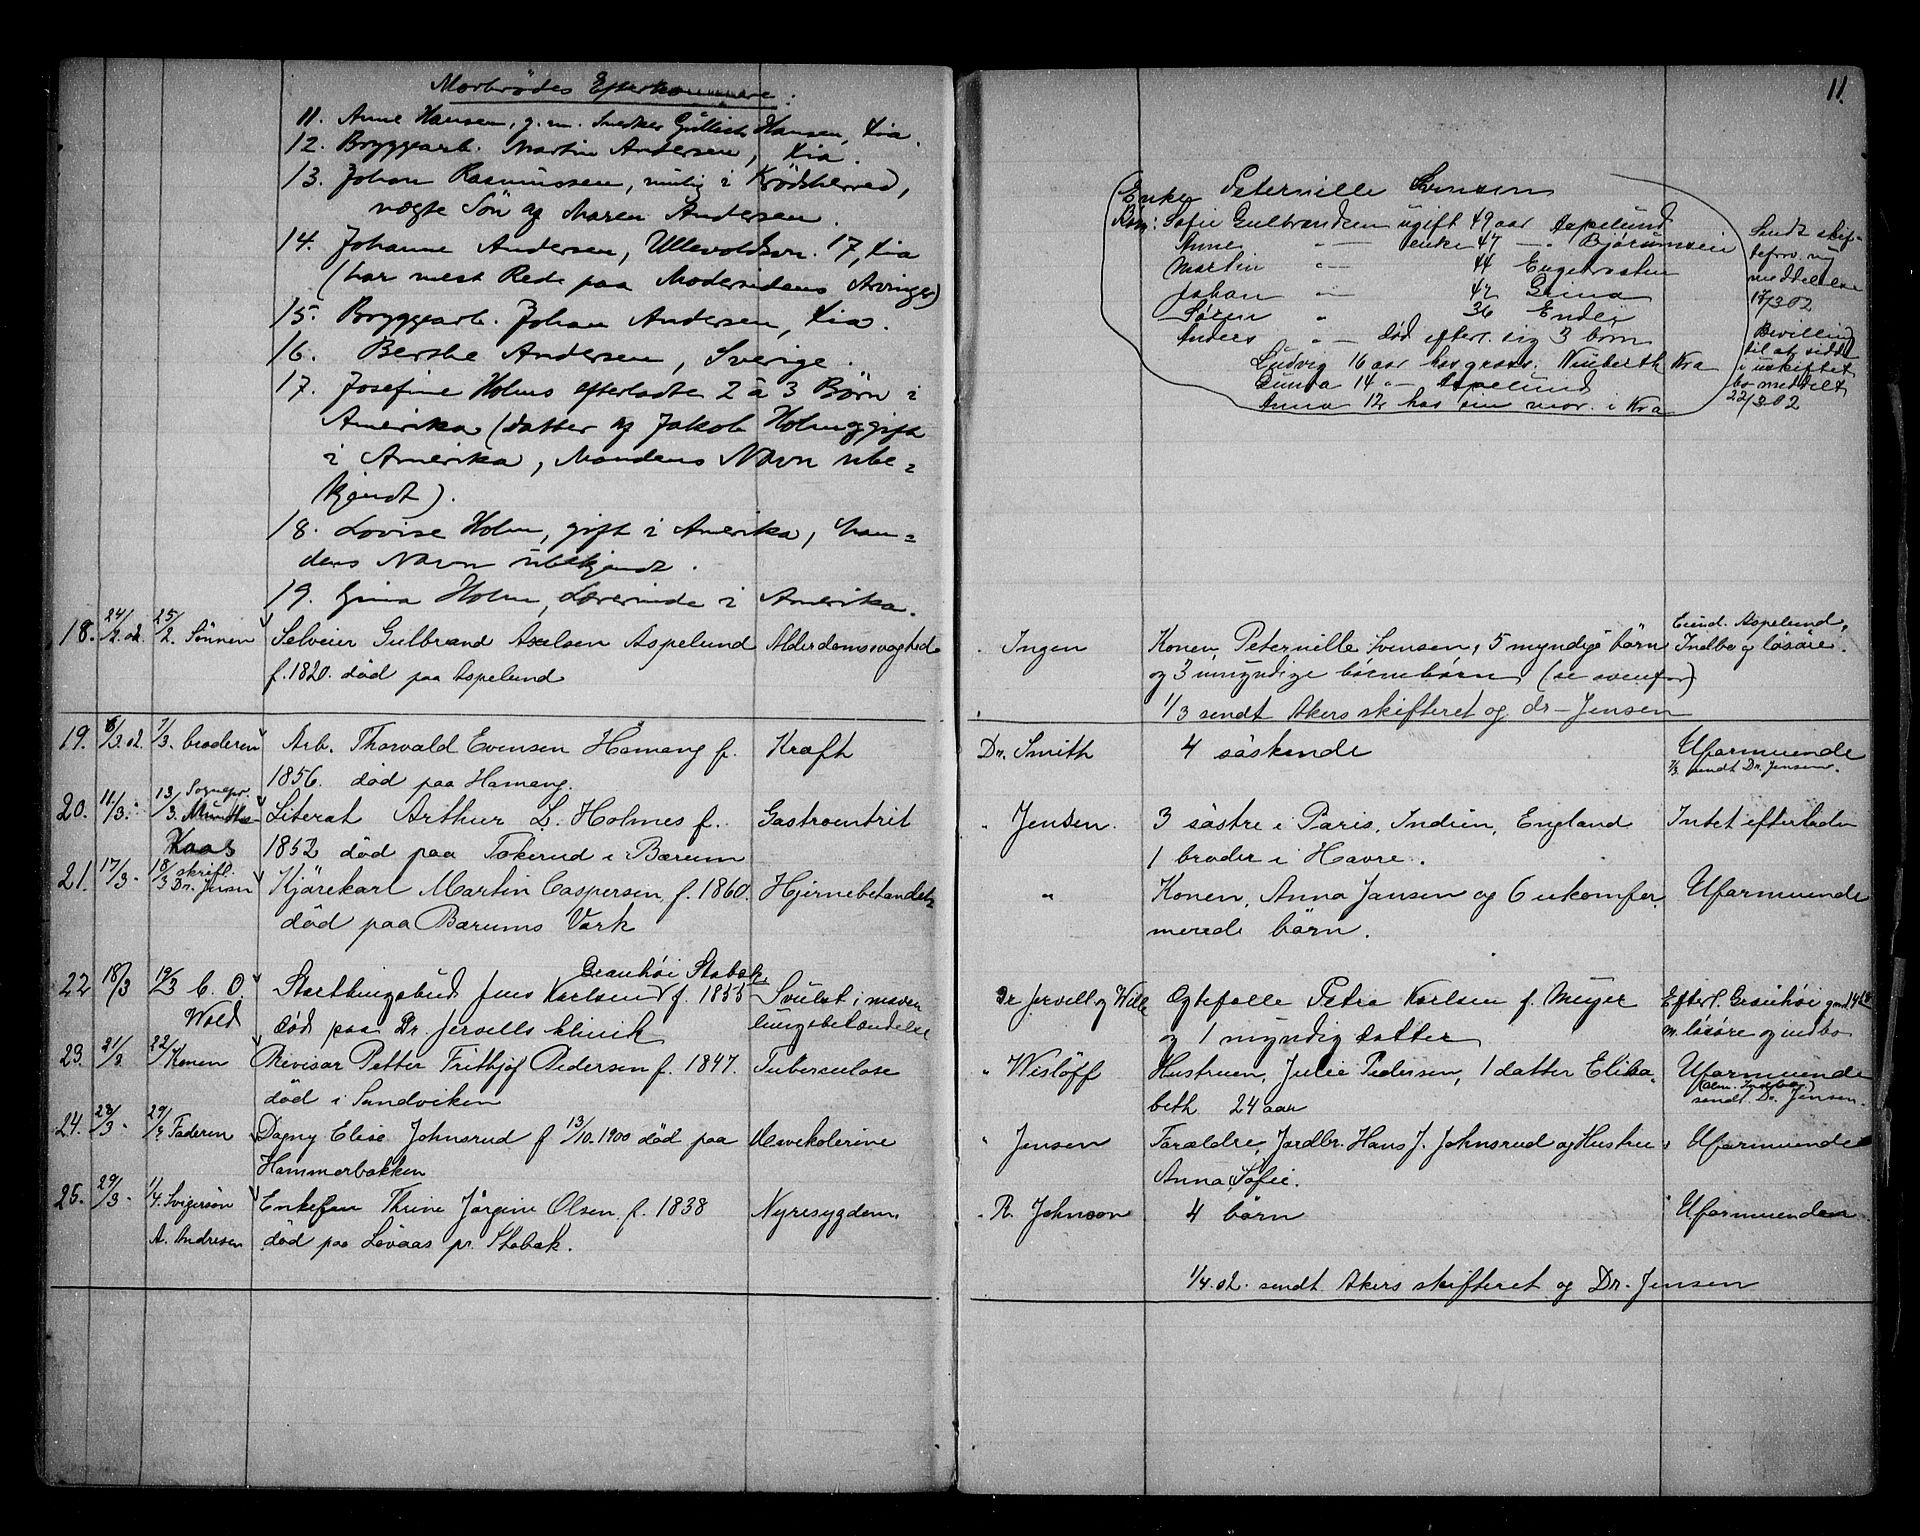 Morbrödes Efterkommere:
11. Anne Hansen, g. m. Snedker Gullist Hansen, Kia
12. Bryggearb. Martin Andersen, Kia.
13. Johan Rasmussen, mulig i Krödsherred,
vegte Sön af Maren Andersen.
14. Johanne Andersen, Ullevoldsvn. 17, Kia
(har mest Rede paa Modersidens Arvinger)
15. Bryggearb. Johan Andersen, Kia.
16. Berthe Andersen, Sverige.
17. Josefine Holms efterladte 2 à 3 Børn i
Amerika (datter af Jakob Holm og gift
i Amerika, Mandens Navn ube-
kjendt).
18. Lovise Holm, gift i Amerika, Man-
dens Navn ubekjendt.
19. Gina Holm, Lærerinde i Amerika.
18. 24/2.02. 25/2. Sönnen Selveier Gulbrand Axelsen Aspelund Alderdomssvaghed
f. 1820. død paa Aspelund
19. 6/3.02. 7/3. broderen Arb. Thorvald Evensen Hamang f. Kræft
1856. død paa Hamang.
20. 11/3. 13/3. Sognepr. Munthe-Kaas Literat Arthur L. Holmes f. Gastroentrit
1852 død paa Tokerud i Bærum
21. 17/3. 18/3 skriftl. Dr. Jensen Kjörekarl Martin Caspersen f. 1860. Hjernebetændels
død paa Bærums Værk
22 18/3 19/3 C. O. Wold Stortingsbud Jens Karlsen Granhöi Stabæk f. 1855 Svulst i maven
død paa Dr. Jervells klinik lungebetændelse
23. 21/3 22/3 Konen Revisor Petter Frithjof Pedersen f. 1847. Tuberculose
død i Sandviken
24. 28/3. 29/3 Faderen Dagny Elise Johnsrud f 13/10.1900 død paa Aswekolerine
Hammerbakken
25. 29/3. 1/4. Svigersön A. Andresen Enkefru Thrine Jörgine Olsen f. 1838 Nyresygdom
död paa Lövaas pr. Stabæk.
11.
Enke Peternille Svensen
Börn: Sofie Gulbrandsen ugift 49 aar Aspelund
Anne — enke 47 — Bjørumseie
Martin — 44 Engebraaten
Johan — 42 Grina
Sören " 36 Endli
Anders — død efterl. sig 3 børn
Ludvig 16 aar hos grosr. Niuberth Kra
Gunda 14 — Aspelund
Anna 12 hos sin mor. i Kra
Sendt skif-
teforv. ny
meddelelse
17/3 02
Bevilling
til at sidde
i uskiftet
bo meddelt
22/3 02
Ingen Konen Peternille Svensen, 5 myndige börn Eiend. Aspelund,
og 3 umyndige börnebörn (se ovenfor) Indbo og lösöre.
1/3 sendt Akers skifteret og dr. Jensen
Dr. Smith 4 söskende Uformuende
7/3 sendt Dr. Jensen.
" Jensen. 3 söstre i Paris, Indien, England Intet efterladen
1 broder i Havre.
" Konen, Anna Jansen og 6 ukonfir. Uformuende
merede börn.
Dr Jervell og Wille Egtefælle Petra Karlsen f. Meyer Efterl. Granhöi
og 1 myndig datter m. lösöre og indbo
" Wislöff Hustruen, Julie Pedersen, 1 datter Elisa- Uformuende
beth 24 aar sendt Dr. Jensen.
" Jensen Forældre, Jordbr. Hans J. Johnsrud og Hustru Uformuende
Anna Sofie.
" R. Johnson 4 börn Uformuende
1/4.02. sendt Akers skifteret og Dr. Jensen